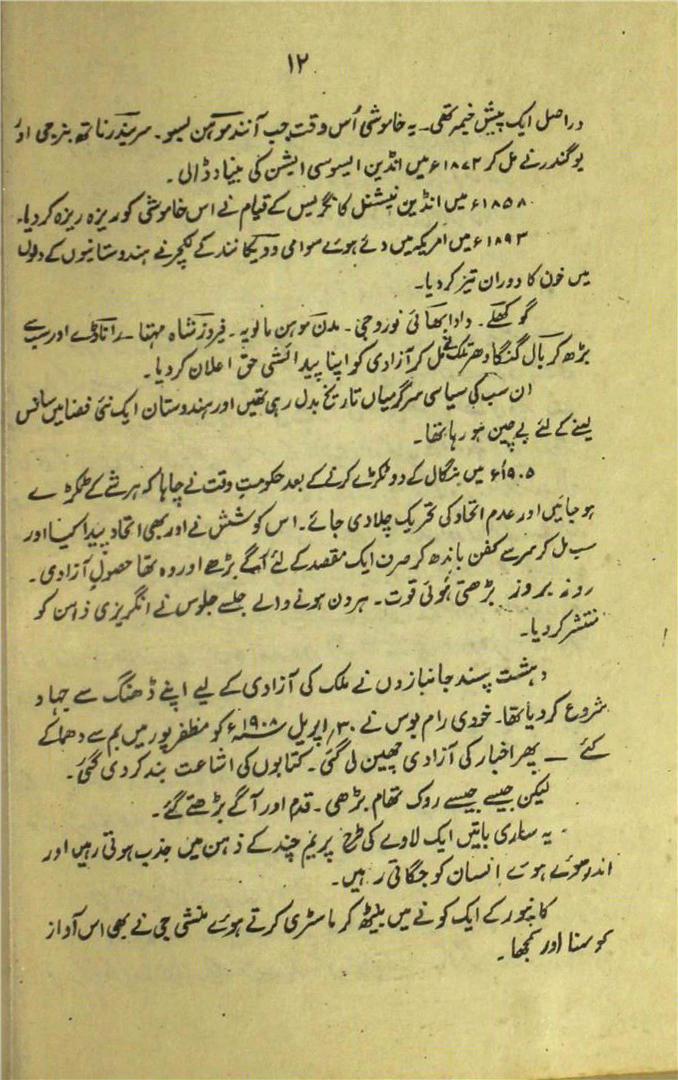 ۱۲
دراصل ایک پیش خیمہ تھی۔ یہ خاموشی اُس وقت جب آنند موہن بسو۔ سریندر ناتھ بنرجی اور
یوگندر نے مل کر ۱۸۷۲ء میں انڈین ایسوسی ایشن کی بنیاد ڈالی۔
۱۸۵۸ء میں انڈین نیشنل کانگریس کے قیام نے اس خاموشی کو ریزہ ریزہ کر دیا۔
۱۸۹۳ء میں امریکہ میں دئے ہوئے سوامی وویکانند کے لکچر نے ہندوستانیوں کے دلوں
میں خون کا دوران تیز کر دیا۔
گوکھلے۔ دادا بھائی نوروجی۔ مدن موہن مالویہ۔ فیروز شاہ مہتا۔ راناڈے اور سب سے
بڑھ کر بال گنگا دھر تلک نے مل کر آزادی کو اپنا پیدائشی حق اعلان کر دیا۔
ان سب کی سیاسی سرگرمیاں تاریخ بدل رہی تھیں اور ہندوستان ایک نئی فضا میں سانس
لینے کے لئے بے چین ہو رہا تھا۔
۱۹۰۵ء میں بنگال کے دو ٹکڑے کرنے کے بعد حکومتِ وقت نے چاہا کہ ہر شے کے ٹکڑے
ہو جائیں اور عدم اتحاد کی تحریک چلا دی جائے۔ اس کوشش نے اور بھی اتحاد پیدا کیا اور
سب مل کر سر سے کفن باندھ کر صرف ایک مقصد کے لئے آگے بڑھے اور وہ تھا حصولِ آزادی۔
روز بروز بڑھتی ہوئی قوت۔ ہر دن ہونے والے جلسے جلوس نے انگریزی ذہن کو
منتشر کر دیا۔
دہشت پسند جانبازوں نے ملک کی آزادی کے لیے اپنے ڈھنگ سے جہاد
شروع کر دیا تھا۔ خودی رام بوس نے ۳۰؍ اپریل ۱۹۰۸ء کو مظفر پور میں بم سے دھماکے
کئے — پھر اخبار کی آزادی چھین لی گئی۔ کتابوں کی اشاعت بند کر دی گئی۔
لیکن جیسے جیسے روک تھام بڑھی۔ قدم اور آگے بڑھتے گئے۔
یہ ساری باتیں ایک لاوے کی طرح پریم چند کے ذہن میں جذب ہوتی رہیں اور
اندر سوئے ہوئے انسان کو جگاتی رہیں۔
کانپور کے ایک کونے میں بیٹھ کر ماسٹری کرتے ہوئے منشی جی نے بھی اس آواز
کو سنا اور سمجھا۔